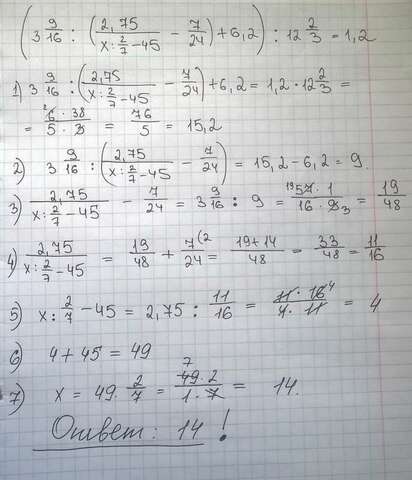 (3 9/16 : (2,75/(x : 2/7 - 45) - 7/24) + 6,2) : 12 2/3 = 1,2
1) 3 9/16 : (2,75/(x : 2/7 - 45) - 7/24) + 6,2 = 1,2 · 12 2/3 =
= 6 · 38/5 · 3 = 76/5 = 15,2
2) 3 9/16 : (2,75/(x : 2/7 - 45) - 7/24) = 15,2 - 6,2 = 9.
3) 2,75/(x : 2/7 - 45) - 7/24 = 3 9/16 : 9 = 57 · 1/16 · 9 = 19/48
4) 2,75/(x : 2/7 - 45) = 19/48 + 7/24 = 19+14/48 = 33/48 = 11/16
5) x : 2/7 - 45 = 2,75 : 11/16 = 11 · 16/4 · 11 = 4
6) 4 + 45 = 49
7) x = 49 · 2/7 = 49 · 2/1 · 7 = 14.
Ответ: 14 !